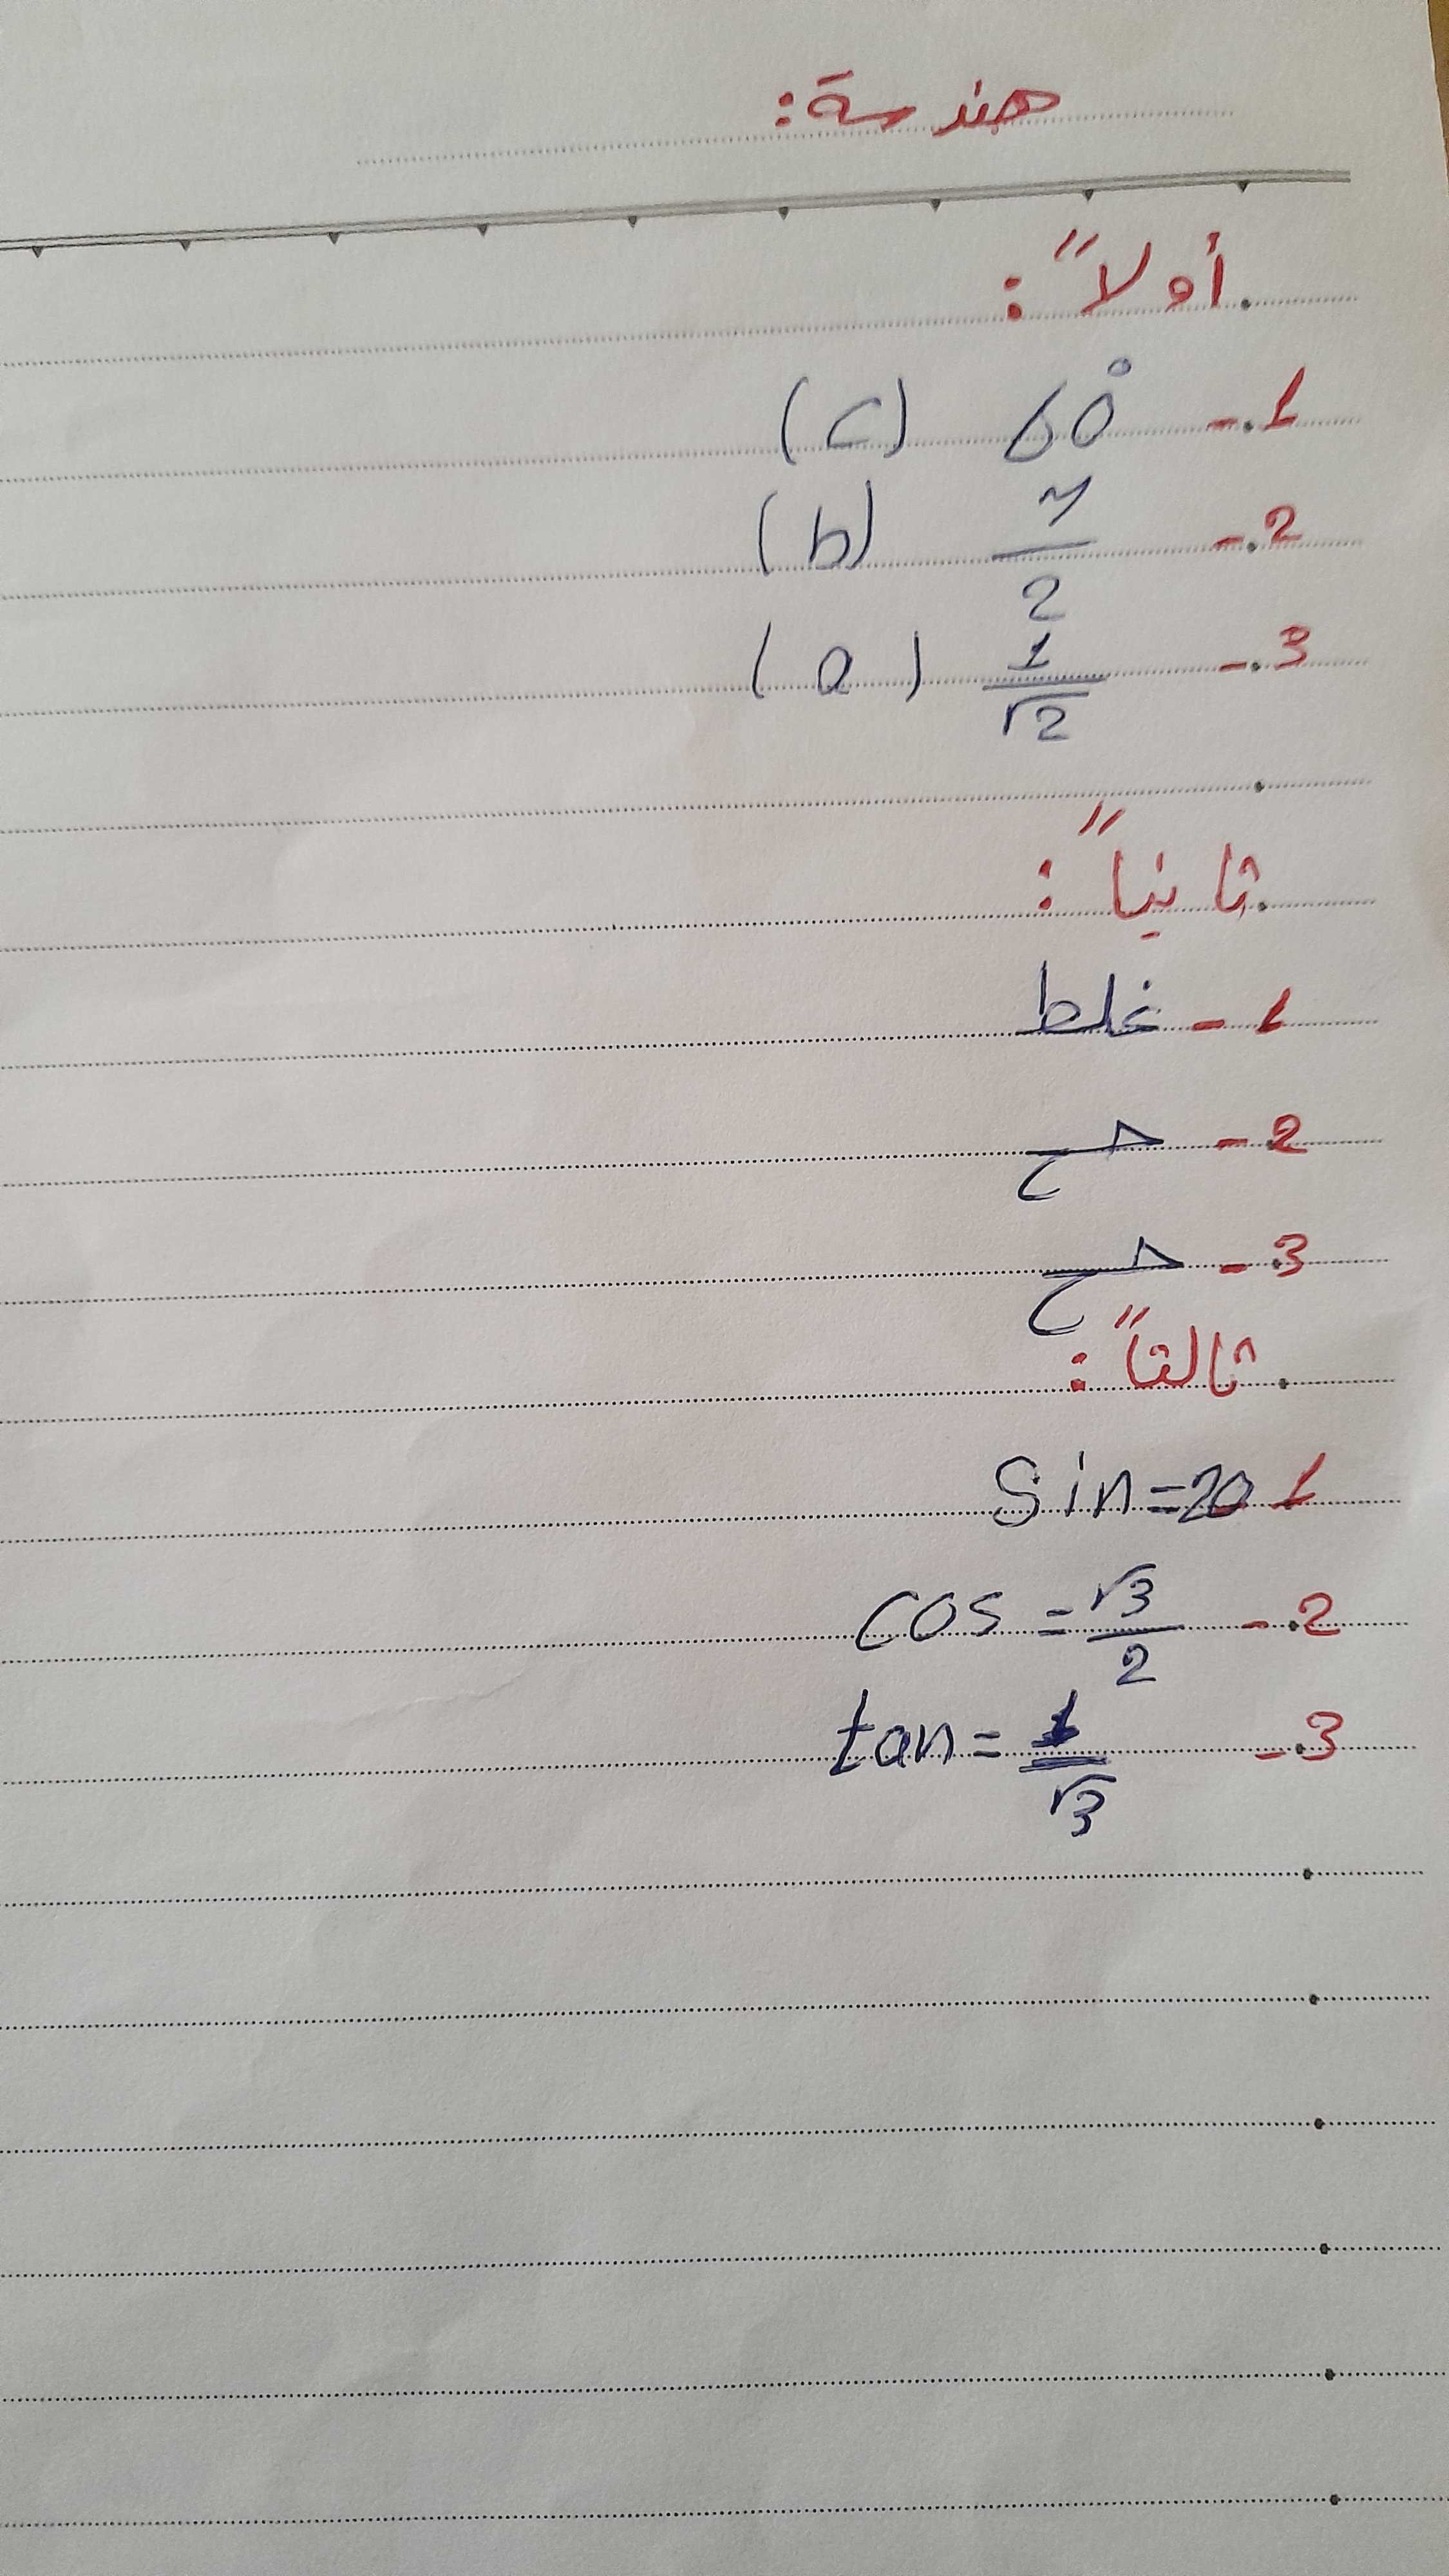 هندسة:
أولاً:
1- 60° (c)
2- ــ/2 (b)
3- 1/√2 (a)
ثانياً:
1- غلط
2- صح
3- صح
ثالثاً:
1 Sin=20
2- cos = √3/2
3- tan = 1/√3